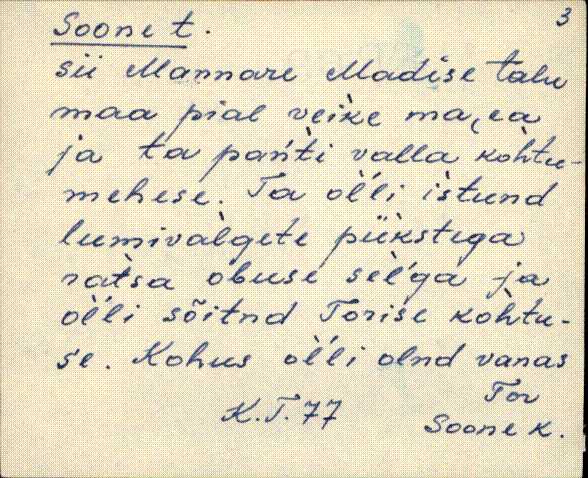 3
Soone t.
sii Mannare Madise talu
maa pial veike maea
ja ta pańti valla kòhtu-
mehese. Ta òĺli istund
lumivalgete pükstega
ratsa obuse seĺ'ga ja
òĺli sõitnd Torise kòhtu-
se. Kohus òĺli olnd vanas
Tor
K.T.77 Soone k.